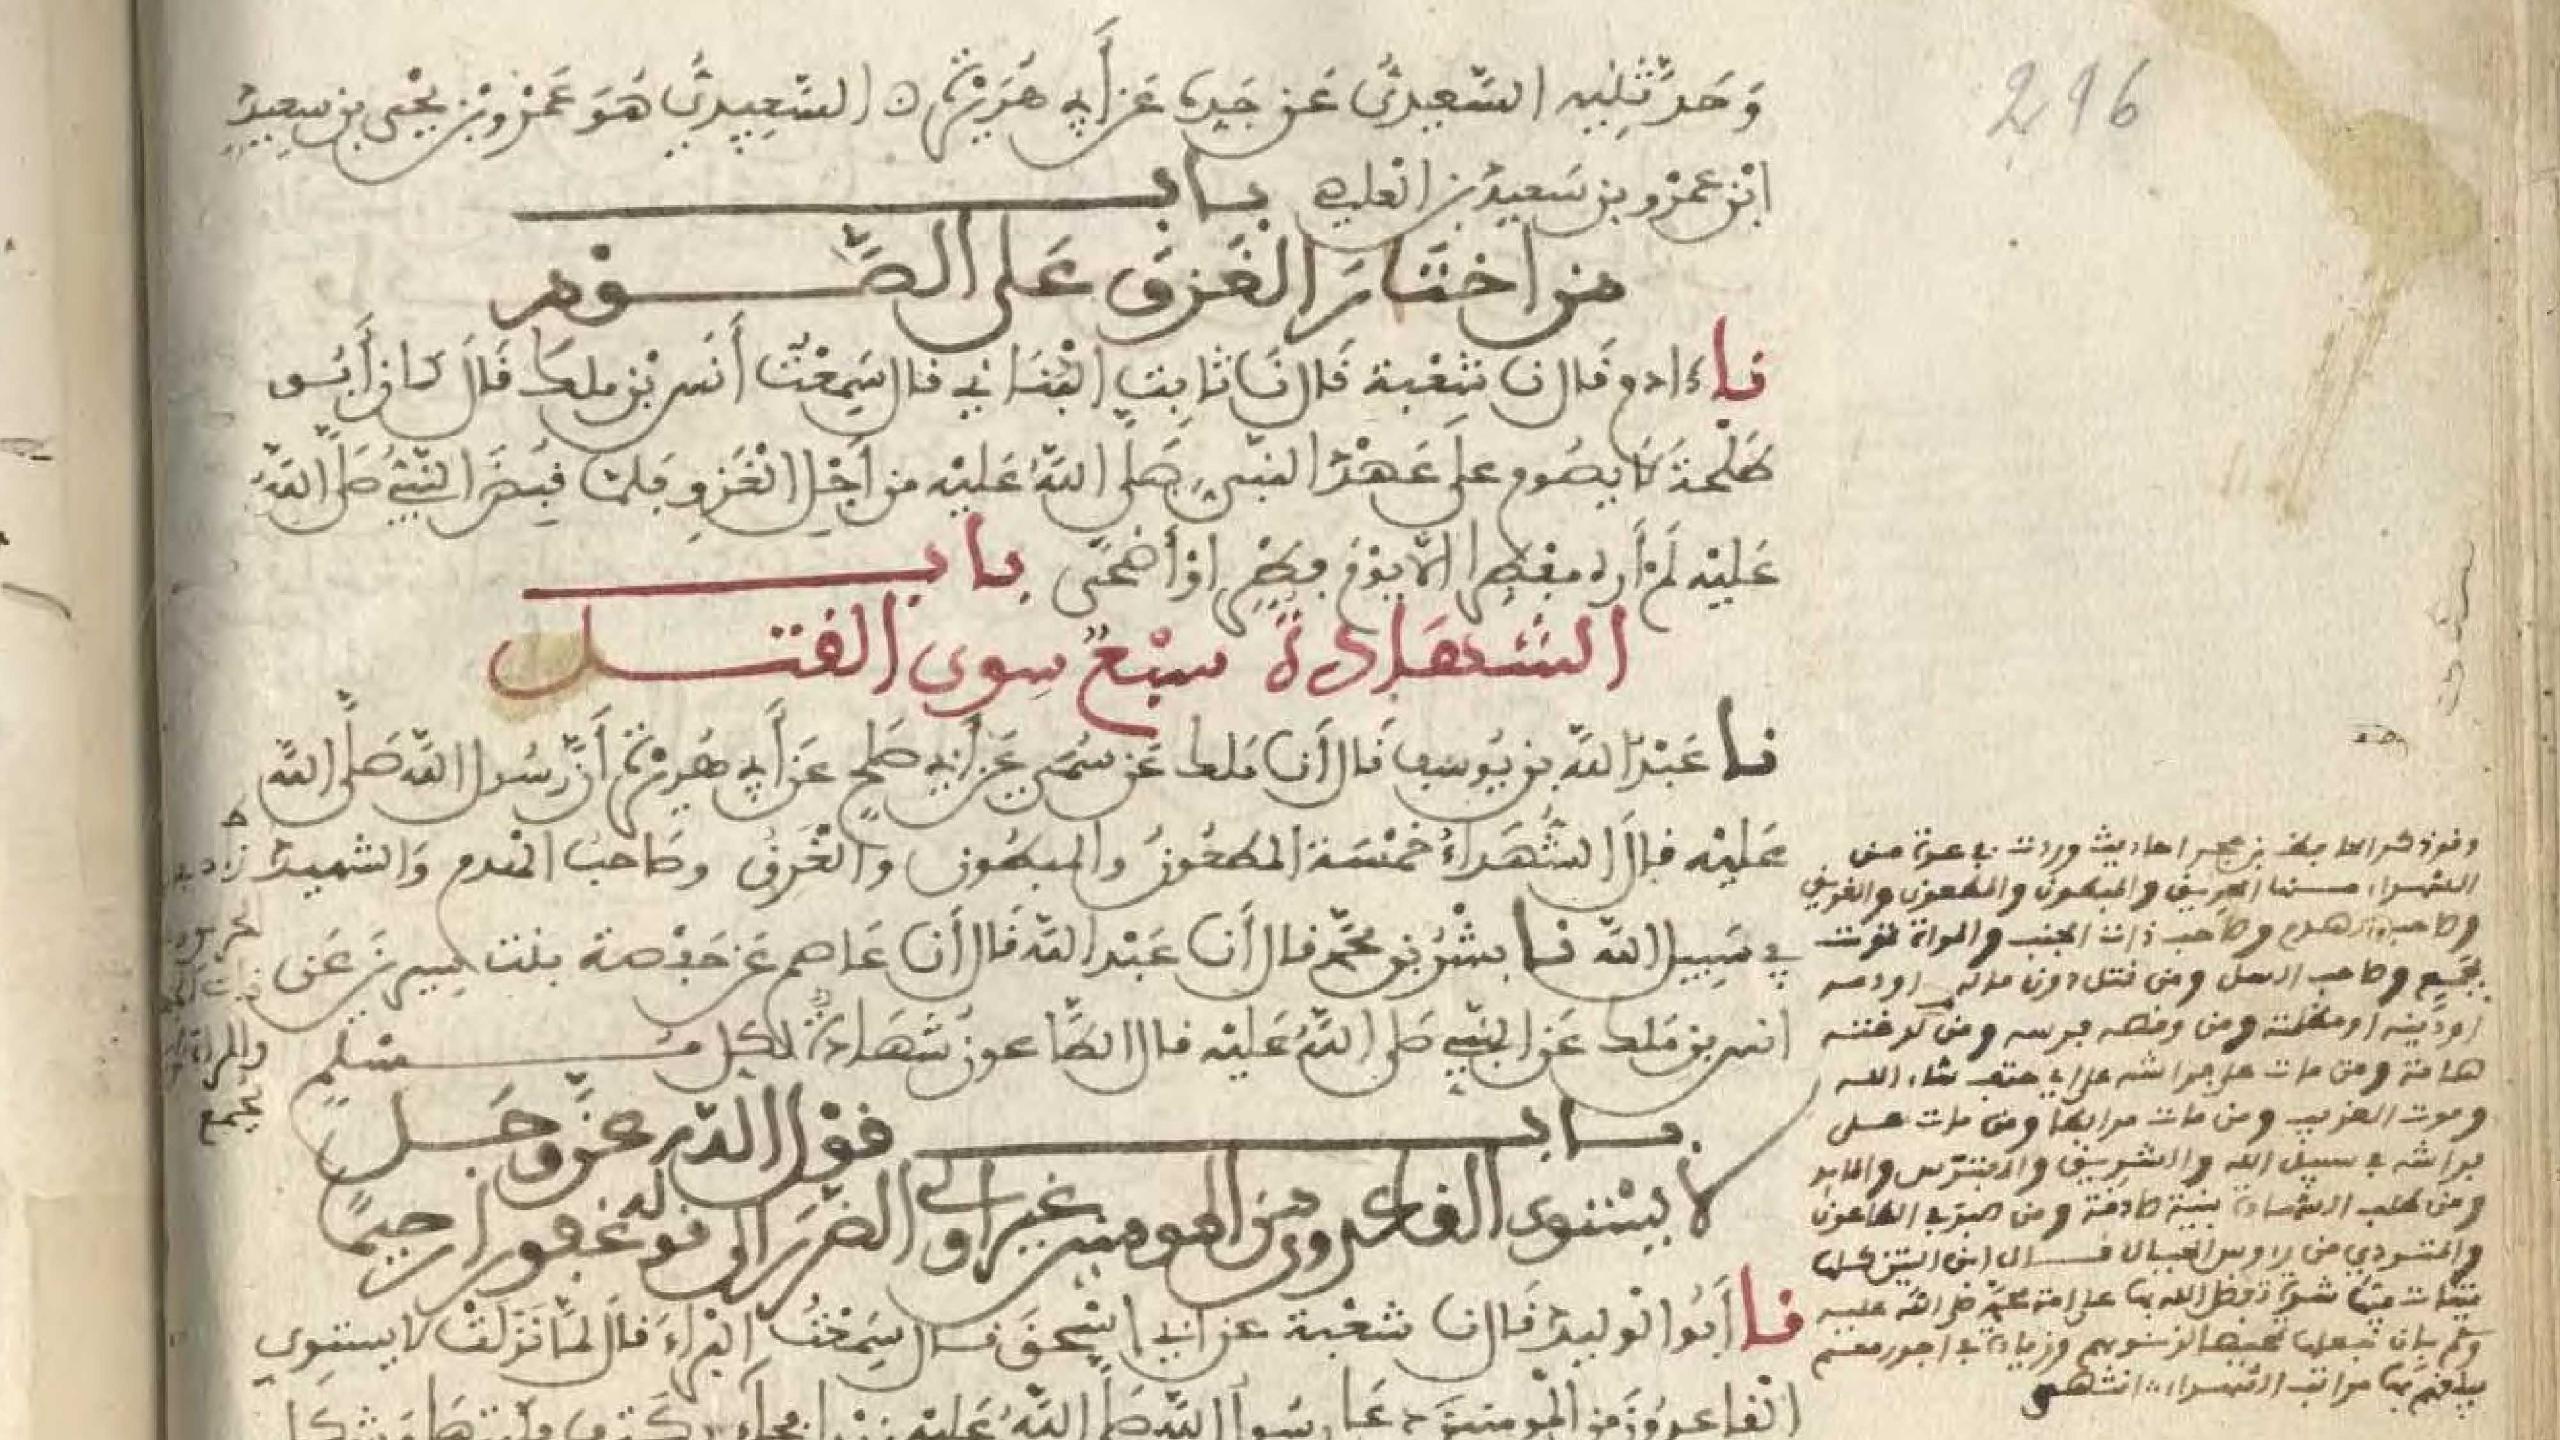 296
وَحَدَّثَنِيهِ السَّعِيدِيُّ عَن جَدِّهِ عَن أَبِي هُرَيْرَةَ ه السَّعِيدِيُّ هُوَ عَمْرُو بْن يَحْيَى بن سَعِيدِ
ابْن عَمْرو بن سَعِيدِ بن العَاصِ باب
من اختَارَ الغَزْوَ عَلَى الصَّوْم
نا ءادم قَال نا شُعْبة قَال نا ثابت البُنَاني قال سَمِعْتُ أَنَس بْن ملك قَالَ كان أَبُو
طَلْحَةَ لَا يصُوم علَى عَهْدِ النبي صَلَّى اللَّهُ عَلَيْهِ من أَجْلِ الغَزْوِ فلمّا قُبِضَ النَّبِيُّ صَلَّى اللَّهُ
عَلَيْهِ لَمْ أَرَه مفْطِرا إلَّا يَوْمَ فِطْرٍ أوْ أَضْحَى باب
الشَّهَادَةُ سَبْعٌ سِوى القَتل
نا عَبْدُ اللَّه بن يُوسف قَال أَنا مَلك عَن سُمَيٍّ عَن أَبِي صَلحٍ عَن أَبِي هُرَيْرَةَ أَنَّ رَسُول اللَّه صَلَّى اللَّه
عَلَيْهِ قالَ الشُّهَدَاءُ خَمْسَة المطعُونُ والمبطُون والغَرِقُ وصَاحبُ الهَدم وَالشهيدُ
في سَبِيل اللَّه نا بِشْرُ بن مُحَمَّد قال أَنا عَبْد اللَّه قَال أَنا عَاصم عَن حَفْصَة بنت سِيرِين عَن
انس بن مَلك عَن النَّبِيِّ صَلى اللَّهُ عَلَيْهِ قال الطَّاعون شَهَادَةٌ لكل مُسْلِمٍ
باب قوْل اللَّه عَزَّ وجَلَّ
لا يسْتَوي القاعدون من المومنين غير أولي الضَّرَر الى قوله غفورا رحيمًا
نا أَبُو الوَليد قَال نا شعْبة عن أبي إسْحَقَ قال سَمِعْتُ البَرَاءَ قَالَ لمَّا نَزَلَتْ لا يستوي
القاعدُونَ مِن المُومنينَ دَعَا رسُول اللَّه صَلَّى اللَّهُ عَلَيْهِ زيدا فجاءَه بكَتِف فكتبَهَا وَشكا
وقد ذكر الحافظ بن حجر احاديث وردت في عدة من
الشهداء منها الحريق والمبطون والمطعون والغريق
وصاحب الهدم وصاحب ذات الجنب والمراة تموت
بجمع وصاحب السل ومن قتل دون ماله او دمه
او دينه او مظلمة ومن وقصه فرسه ومن لدغته
هامة ومن مات على فراشه على اي حتف شاء الله
وموت الغريب ومن مات مرابطا ومن مات على
فراشه في سبيل الله والشريق والمفترس والمايد
ومن طلب الشهادة بنية صادقة ومن صبر في الطاعون
والمتردي من رءوس الجبال قال ابن التين كلها
ميتات فيها شدة تفضل الله بها على امة محمد صلى الله عليه
وسلم بان جعلها تمحيصا لذنوبهم وزيادة في اجورهم
يبلغهم بها مراتب الشهداء انتهى
والمراة
بجمع